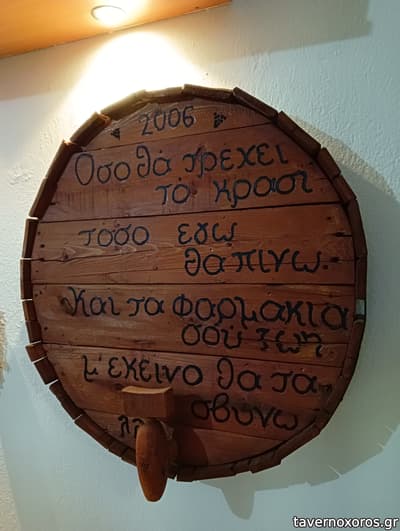 2006
Οσο θα τρεχει
το κρασι
τοσο εγω
θα πινω.
Και τα φαρμακια
σου ζωη
μ' εκεινο θα τα
σβυνω
tavernoxoros.gr